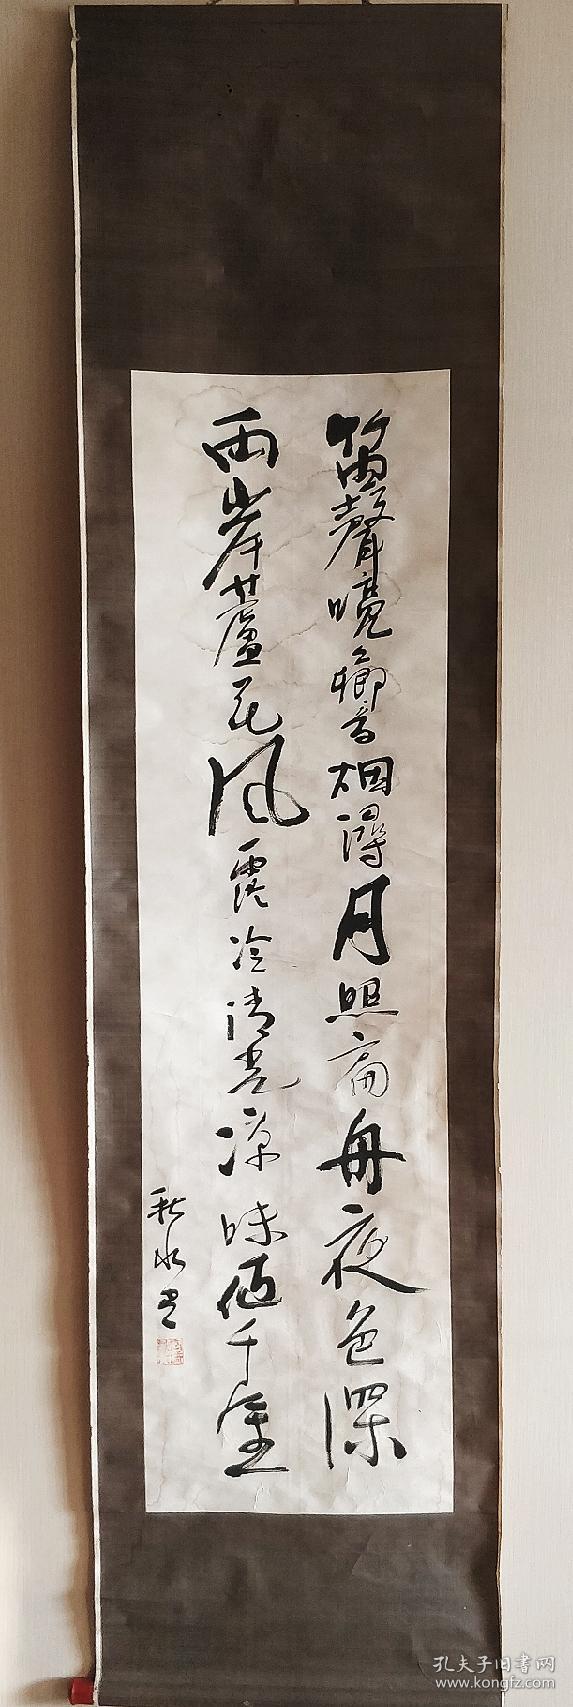 笛聲烟潯月照扁舟夜色深
兩岸蘆花風露冷清光涼味值千金
秋水書
孔夫子旧書网
www.kongfz.com